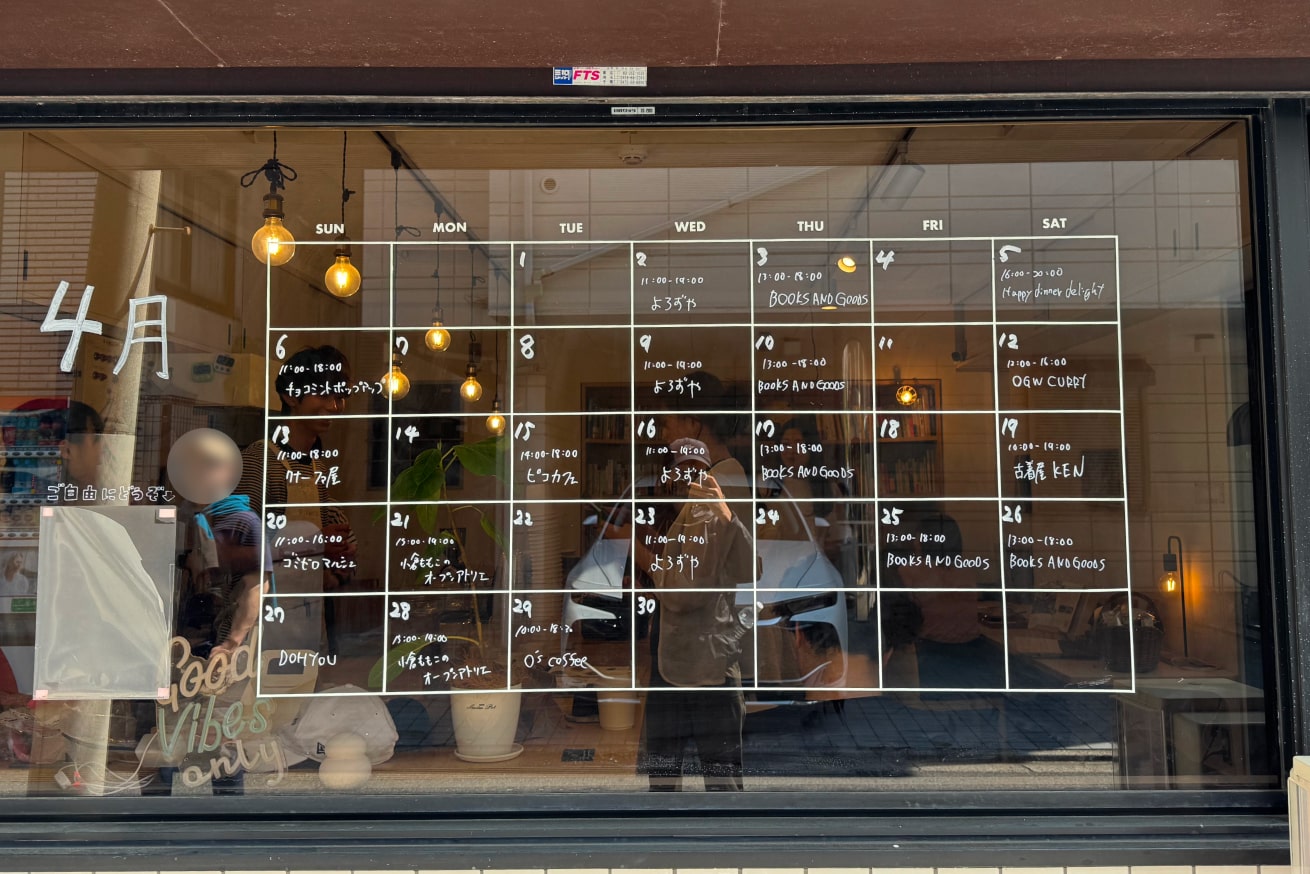 FTS
SUN MON TUE WED THU FRI SAT
4月
1
2
11:00-19:00
よろずや
3
13:00-18:00
BOOKS AND GOODS
4
5
16:00-20:00
Happy dinner delight
6
11:00-18:00
チョコミントポップアップ
7
8
9
11:00-19:00
よろずや
10
13:00-18:00
BOOKS AND GOODS
11
12
12:00-16:00
OGW CURRY
13
11:00-18:00
14
15
14:00-18:00
ピコカフェ
16
11:00-19:00
よろずや
17
13:00-18:00
BOOKS AND GOODS
18
19
10:00-19:00
古着屋 KEN
20
11:00-16:00
ゴミゼロマルシェ
21
15:00-19:00
小倉ももこの
オープンアトリエ
22
23
11:00-19:00
よろずや
24
25
13:00-18:00
BOOKS AND GOODS
26
13:00-18:00
BOOKS AND GOODS
27
DOHYOU
28
15:00-19:00
小倉ももこの
オープンアトリエ
29
10:00-18:30
O's coffee
30
ご自由にどうぞ↓
Good
Vibes
only